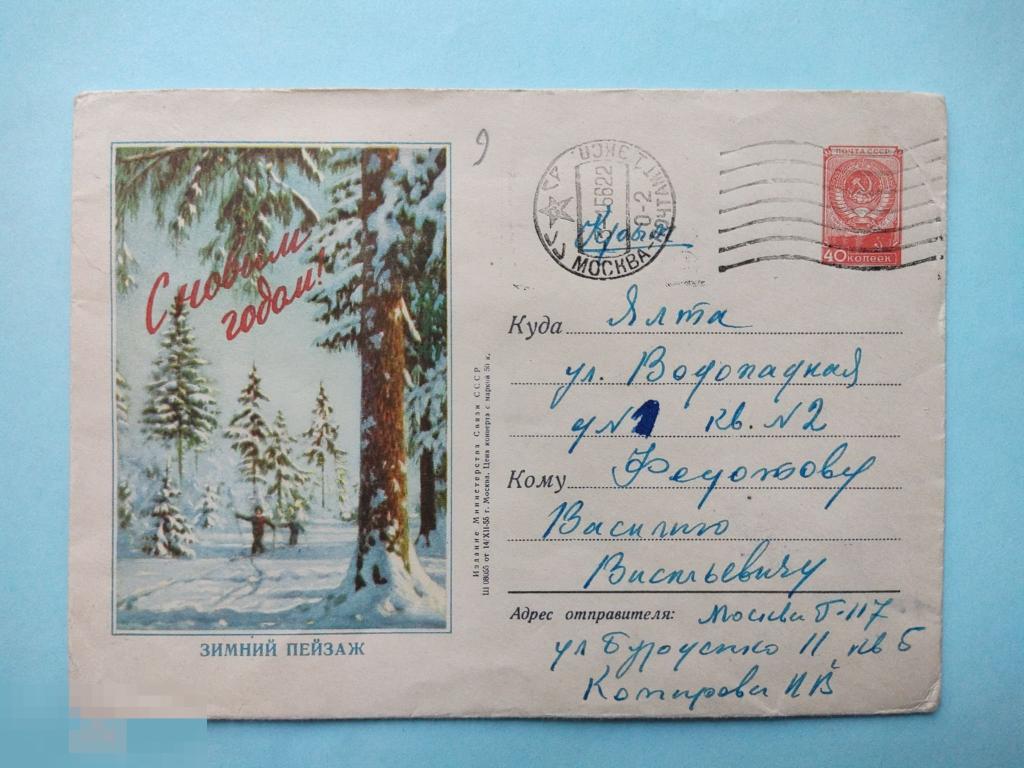 С новым
годом!
ЗИМНИЙ ПЕЙЗАЖ
Издание Министерства Связи СССР
Ш 08055 от 14/XII-55 г. Москва. Цена конверта с маркой 50 к.
9
МОСКВА-ПОЧТАМТ 1 ЭКСП.
5622
0-2
ПОЧТА СССР
40 КОПЕЕК
Крым
Куда Ялта
ул. Водопадная
д № 1 кв. № 2
Кому
Василию
Васильевичу
Адрес отправителя: Москва Г-117
ул Бурденко 11 кв Б